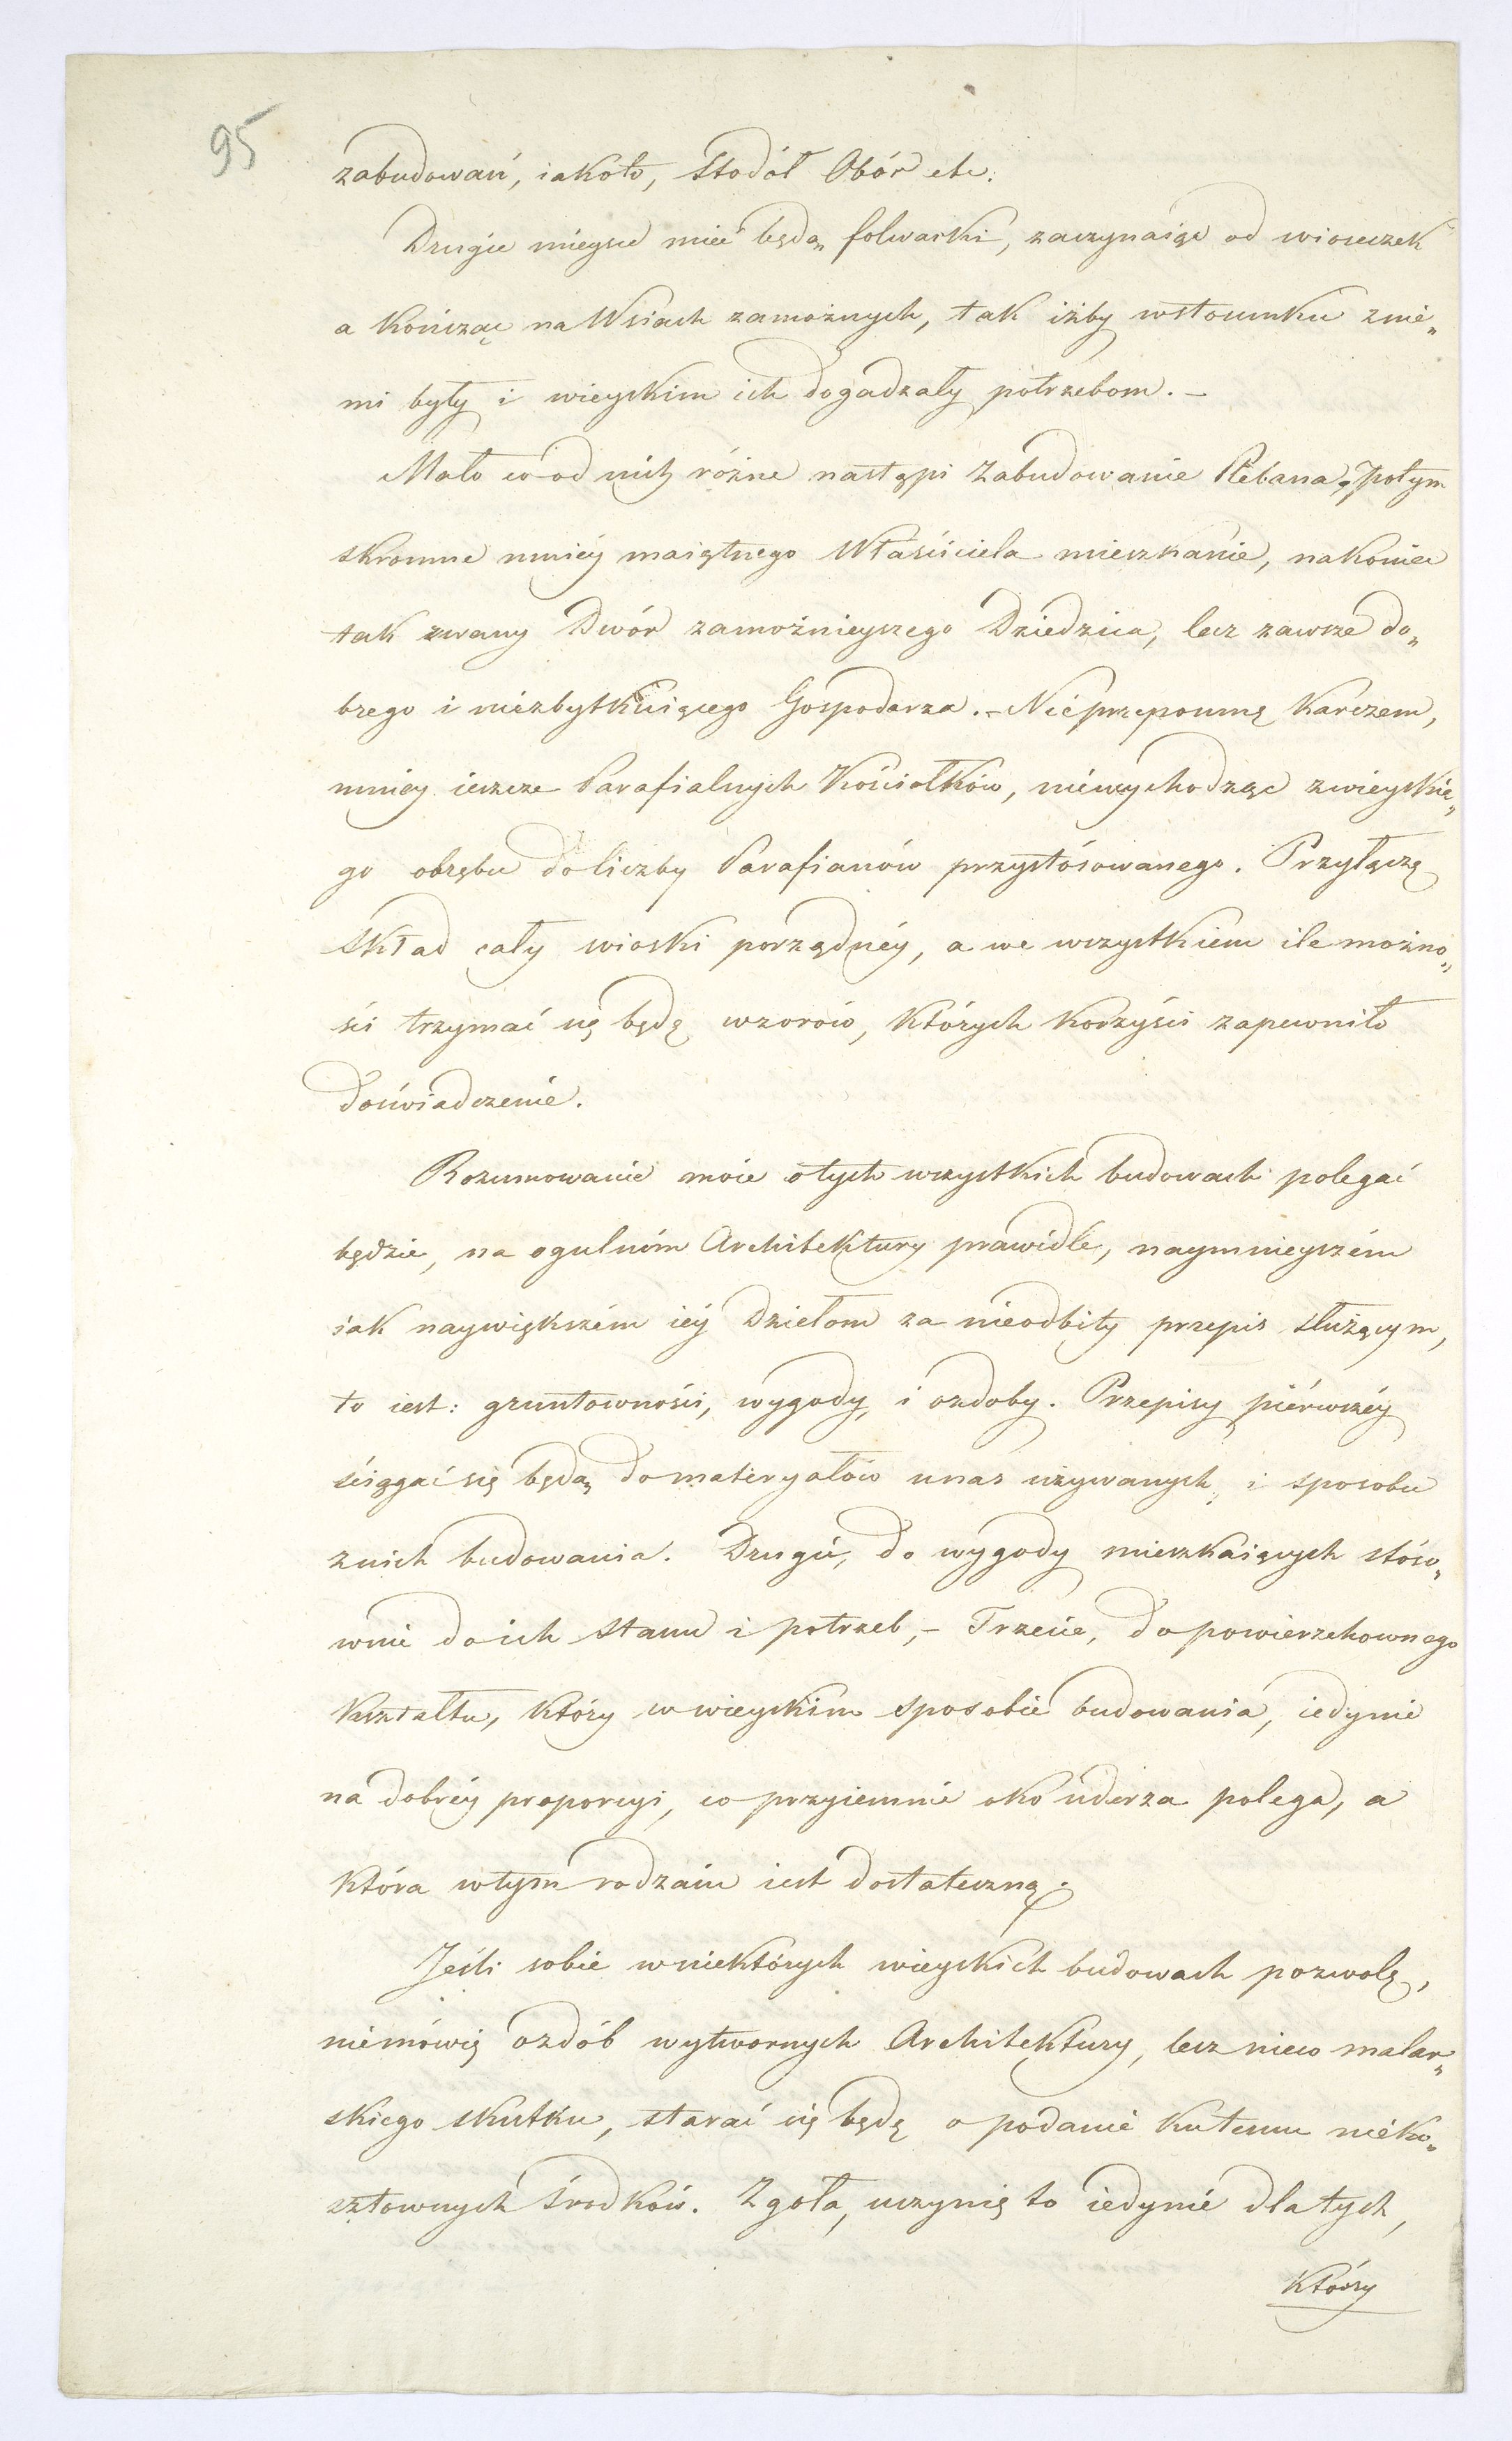 95
zabudowań, iakoto, Stodół Obór etc:
Drugie mieysce mieć będą folwarki, zaczynaiąc od wioseczek
a kończąc na Wsiach zamożnych, tak iżby wstosunku znie„
mi były i wieyskim ich dogadzały potrzebom. –
Mało co od nich różne nastąpi Zabudowanie Plebana, potym
skromne mniéy maiętnego Właściciela mieszkanie, nakoniec
tak zwany Dwór zamożnieyszego Dziedzica, lecz zawsze do„
brego i niezbytkuiącego Gospodarza. – Nieprzepomnę Karczem,
mniey ieszcze Parafialnych Kościołków, niewychodząc zwieyskie„
go obrębu doliczby Parafianów przystósowanego. Przyłączę
Skład cały wioski porządnéy, a we wszystkiem ile możno„
ści trzymać się będę wzorów, których korzyści zapewniło
doświadczenie.
Rozumowanie moie otych wszystkich budowach polegać
będzie, na ogulném Architektury prawidle, naymnieyszém
iak naywiększém iéy Dziełom za nieodbity przepis służącym,
to iest: gruntowności, wygody, i ozdoby. Przepisy piérwszéy
ściągać się będą domateryałów unas używanych, i sposobu
znich budowania. Drugie, do wygody mieszkaiących stóso„
wnie doich stanu i potrzeb, – Trzecie, do powierzchownego
Kształtu, który wwieyskim sposobie budowania, iedynie
na dobréy proporcyi, co przyiemnie oko uderza polega, a
która wtym rodzaiu iest dostateczną.
Jeśli sobie wniektórych wieyskich budowach pozwolę,
niemówię ozdób wytwornych Architektury, lecz nieco malar„
skiego skutku, starać się będę o podanie kutemu nieko„
sztownych środków. Zgoła, uczynię to iedynie dla tych,
Którzy